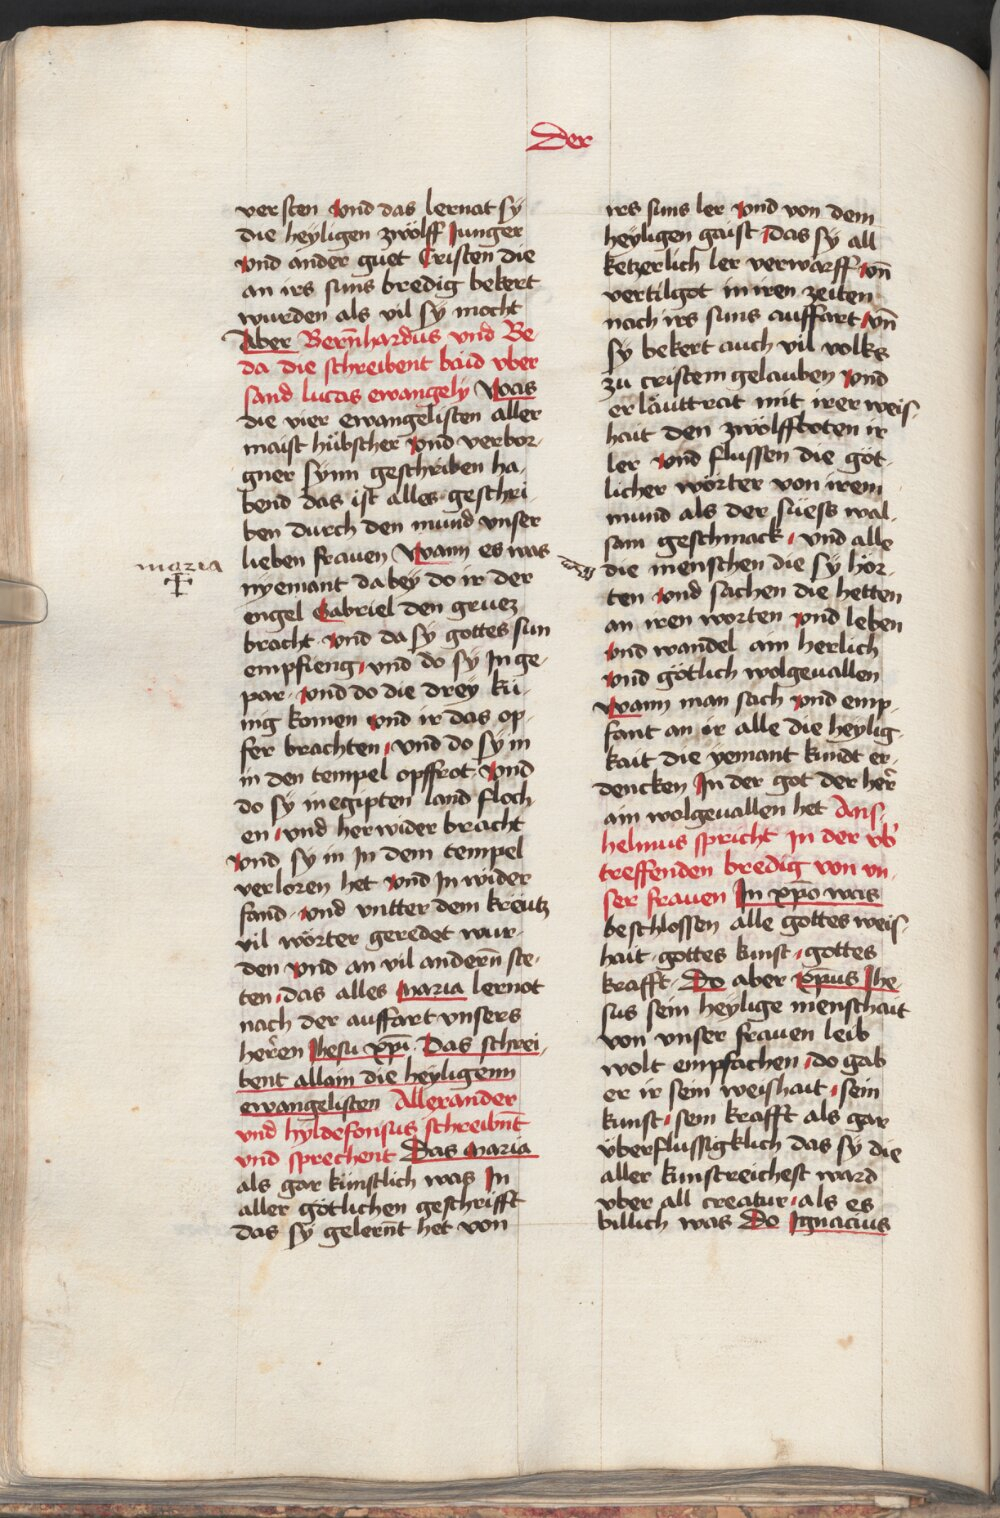 Der
versten Vnd das lernat sÿ
die heÿligen zwölff Junger
Vnd ander guet Cristen die
an irs suns bredig bekert
wurden als vil sÿ mocht
Aber Bern̄hardus vnd Be
da die schreibent baid vber
sand lucas ewangelÿ Was
die vier ewangelisten aller
maist hübscher Vnd verbor-
gner sÿnn geschriben ha-
bend das ist alles geschri-
ben durch den mund vnser
lieben frauen Wann es was
maria
nÿemant dabeÿ do ir der
engel Gabriel den gruez
bracht Vnd da sÿ gottes sun
empfieng Vnd do sÿ In ge-
par Vnd do die dreÿ kü-
nig komen Vnd ir das op-
fer brachten Vnd do sÿ in
in den tempel opffrot Vnd
do sÿ in egipten land floch
en Vnd herwider bracht
Vnd sÿ in In dem tempel
verloren het Vnd In wider
fand Vnd vntter dem kreütz
vil wörter geredet wur-
den Vnd an vil andern̄ ste-
ten das alles Maria lernot
nach der auffart vnsers
her̄en Jhesu xp̄i Das schrei-
bent allain die heÿligenn
ewangelisten Allexander
vnd hÿldefonsus schreibn̄t
vnd sprechent Das Maria
als gar künstlich was In
aller götlichen geschrifft
das sÿ gelern̄t het von
irs suns ler Vnd von dem
heÿligen gaist Das sÿ all
ketzerlich ler verwarff Vn̄
vertilgot in iren zeiten
nach irs suns auffart Vn̄
sÿ bekert auch vil volks
zu cristem gelauben Vnd
erläuttrat mit irer weis-
hait den zwölffboten ir
ler Vnd flussen die göt-
licher wörter von irem
mund als der süess wal-
sam geschmack Vnd alle
die menschen die sÿ hör-
ten Vnd sachen die hetten
an iren worten Vnd leben
Vnd wandel ain herlich
Vnd götlich wolgeuallen
Wann man sach Vnd emp-
fant an ir alle die heÿlig-
kait die ÿemant kundt er-
dencken In der got der her̄
ain wolgeuallen het Ans-
helmus spricht In der vb̄
treffenden bredig von vn-
ser frauen In xp̄o was
beschlossen alle gottes weis-
hait gottes kunst gottes
krafft Do aber xp̄us Jhe
sus sein heÿlige menschait
von vnser frauen leib
wolt empfachen do gab
er ir sein weishait sein
kunst sein krafft als gar
überflussigklich das sÿ die
aller kunstreichest ward
vber all creatur als es
billich was Do Ignacius